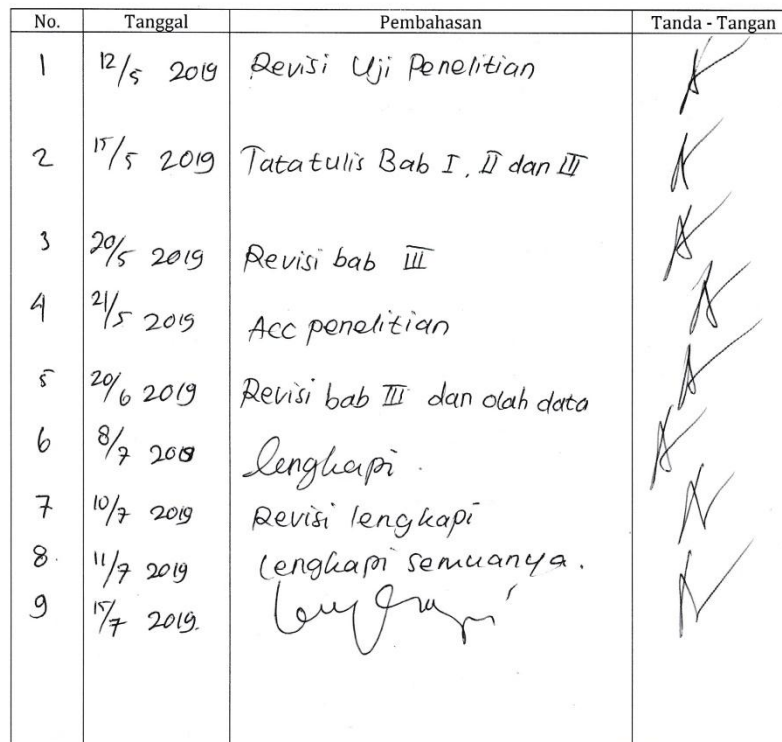 No. Tanggal Pembahasan Tanda - Tangan
1 12/5 2019 Revisi Uji Penelitian
2 15/5 2019 Tata tulis Bab I, II dan III
3 20/5 2019 Revisi bab III
4 21/5 2019 Acc penelitian
5 20/6 2019 Revisi bab III dan olah data
6 8/7 2019 lengkapi.
7 10/7 2019 Revisi lengkapi
8. 11/7 2019 lengkapi semuanya.
9 15/7 2019. lengkapi